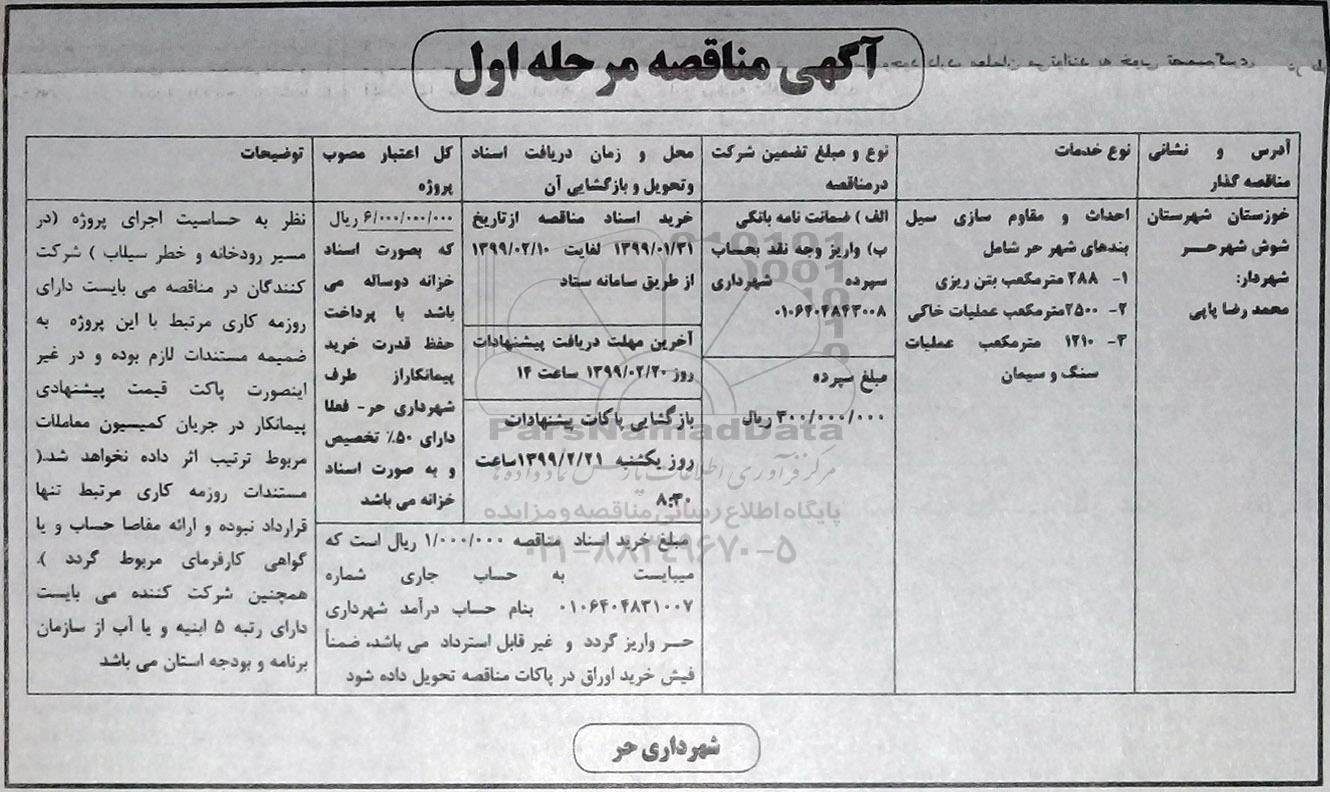 آگهی مناقصه مرحله اول
آدرس و نشانی
مناقصه گذار
نوع خدمات
نوع و مبلغ تضمین شرکت
درمناقصه
محل و زمان دریافت اسناد
وتحویل و بازگشایی آن
کل اعتبار مصوب
پروژه
توضیحات
خوزستان شهرستان
شوش شهر حر
شهردار:
محمد رضا پاپی
احداث و مقاوم سازی سیل
بندهای شهر حر شامل
۱- ۲۸۸ مترمکعب بتن ریزی
۲- ۲۵۰۰مترمکعب عملیات خاکی
۳- ۱۲۱۰ مترمکعب عملیات
سنگ و سیمان
الف ) ضمانت نامه بانکی
ب) واریز وجه نقد بحساب
سپرده شهرداری
۰۱۰۶۴۰۴۸۴۳۰۰۸
مبلغ سپرده
۳۰۰/۰۰۰/۰۰۰ ریال
خرید اسناد مناقصه ازتاریخ
۱۳۹۹/۰۱/۳۱ لغایت ۱۳۹۹/۰۲/۱۰
از طریق سامانه ستاد
آخرین مهلت دریافت پیشنهادات
روز ۱۳۹۹/۰۲/۲۰ ساعت ۱۴
بازگشایی پاکات پیشنهادات
روز یکشنبه ۱۳۹۹/۲/۲۱ساعت
۸:۳۰
۶/۰۰۰/۰۰۰/۰۰۰ ریال
که بصورت اسناد
خزانه دوساله می
باشد با پرداخت
حفظ قدرت خرید
پیمانکاراز طرف
شهرداری حر- فعلا
دارای ۵۰٪ تخصیص
و به صورت اسناد
خزانه می باشد
مبلغ خرید اسناد مناقصه ۱/۰۰۰/۰۰۰ ریال است که
میبایست به حساب جاری شماره
۰۱۰۶۴۰۴۸۳۱۰۰۷ بنام حساب درآمد شهرداری
حر واریز گردد و غیر قابل استرداد می باشد، ضمناً
فیش خرید اوراق در پاکات مناقصه تحویل داده شود
نظر به حساسیت اجرای پروژه (در
مسیر رودخانه و خطر سیلاب ) شرکت
کنندگان در مناقصه می بایست دارای
روزمه کاری مرتبط با این پروژه به
ضمیمه مستندات لازم بوده و در غیر
اینصورت پاکت قیمت پیشنهادی
پیمانکار در جریان کمیسیون معاملات
مربوط ترتیب اثر داده نخواهد شد.(
مستندات روزمه کاری مرتبط تنها
قرارداد نبوده و ارائه مفاصا حساب و یا
گواهی کارفرمای مربوط گردد ).
همچنین شرکت کننده می بایست
دارای رتبه ۵ ابنیه و یا آب از سازمان
برنامه و بودجه استان می باشد
ParsNamadData
مرکز فرآوری اطلاعات پارس نماد داده ها
پایگاه اطلاع رسانی مناقصه و مزایده
۰۲۱-۸۸۳۴۹۶۷۰-۵
شهرداری حر